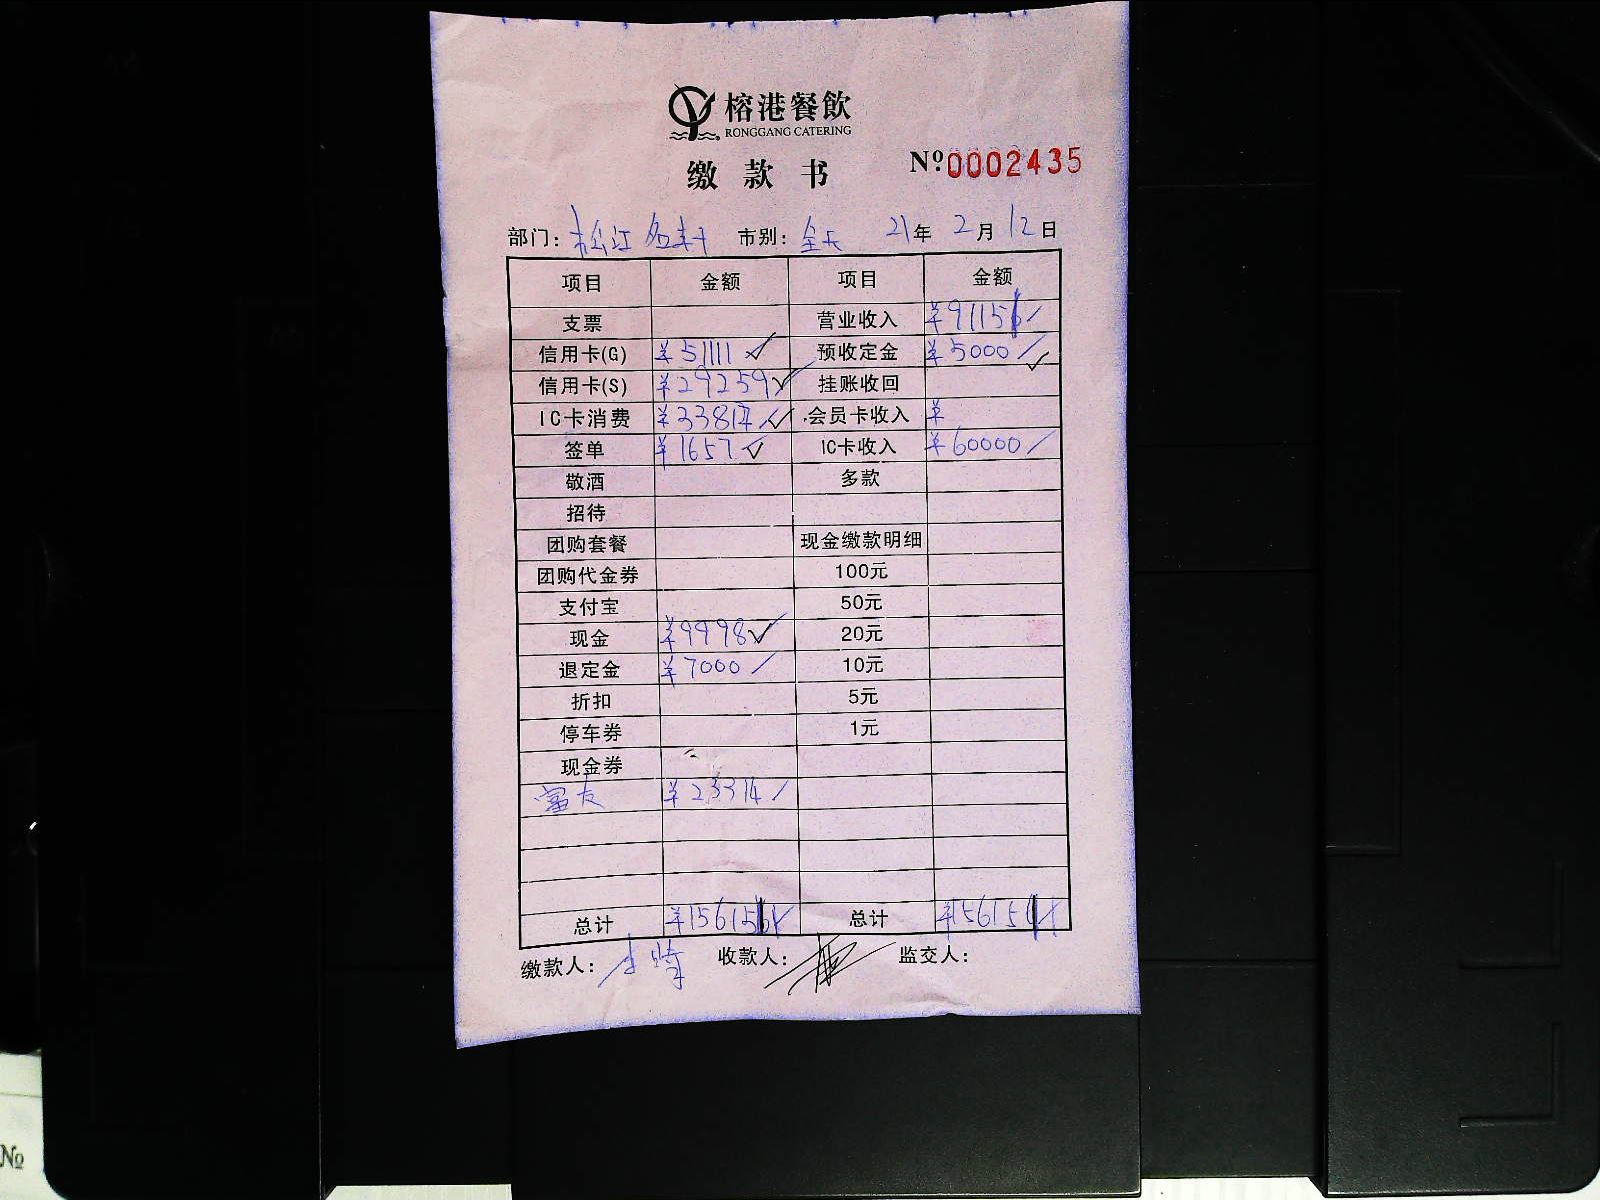 榕港餐飲
RONGGANG CATERING
缴款书
Nº0002435
部门: 松江 市别: 全天 21年 2月 12日
项目 金额 项目 金额
支票 营业收入 ¥91156
信用卡(G) ¥51111 预收定金 ¥5000
信用卡(S) ¥29259 挂账收回
IC卡消费 ¥33817 会员卡收入 ¥
签单 ¥1657 IC卡收入 ¥60000
敬酒 多款
招待
团购套餐 现金缴款明细
团购代金券 100元
支付宝 50元
现金 ¥9998 20元
退定金 ¥7000 10元
折扣 5元
停车券 1元
现金券
富友 ¥23314
总计 ¥156156 总计 ¥156156
缴款人: 收款人: 监交人:
Nº